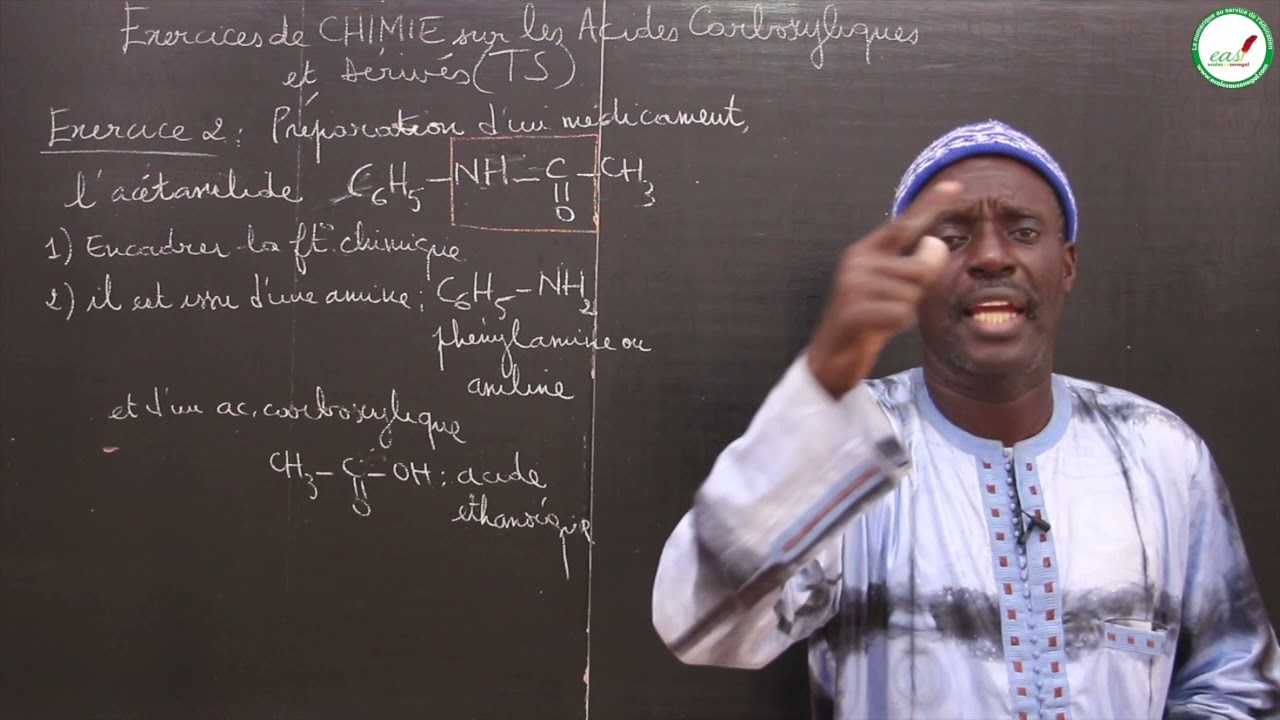 Exercices de CHIMIE sur les Acides Carboxyliques
et dérivés (TS)
Exercice 2 : Préparation d'un médicament,
l'acétanilide C6H5 - NH - C - CH3
O
1) Encadrer la ft° chimique.
2) il est issu d'une amine : C6H5 - NH2
phénylamine ou
aniline
et d'un ac. carboxylique
CH3 - C - OH : acide
O
éthanoïque
Le numérique au service de l'éducation
eas
ecolesausenegal
www.ecolesausenegal.com